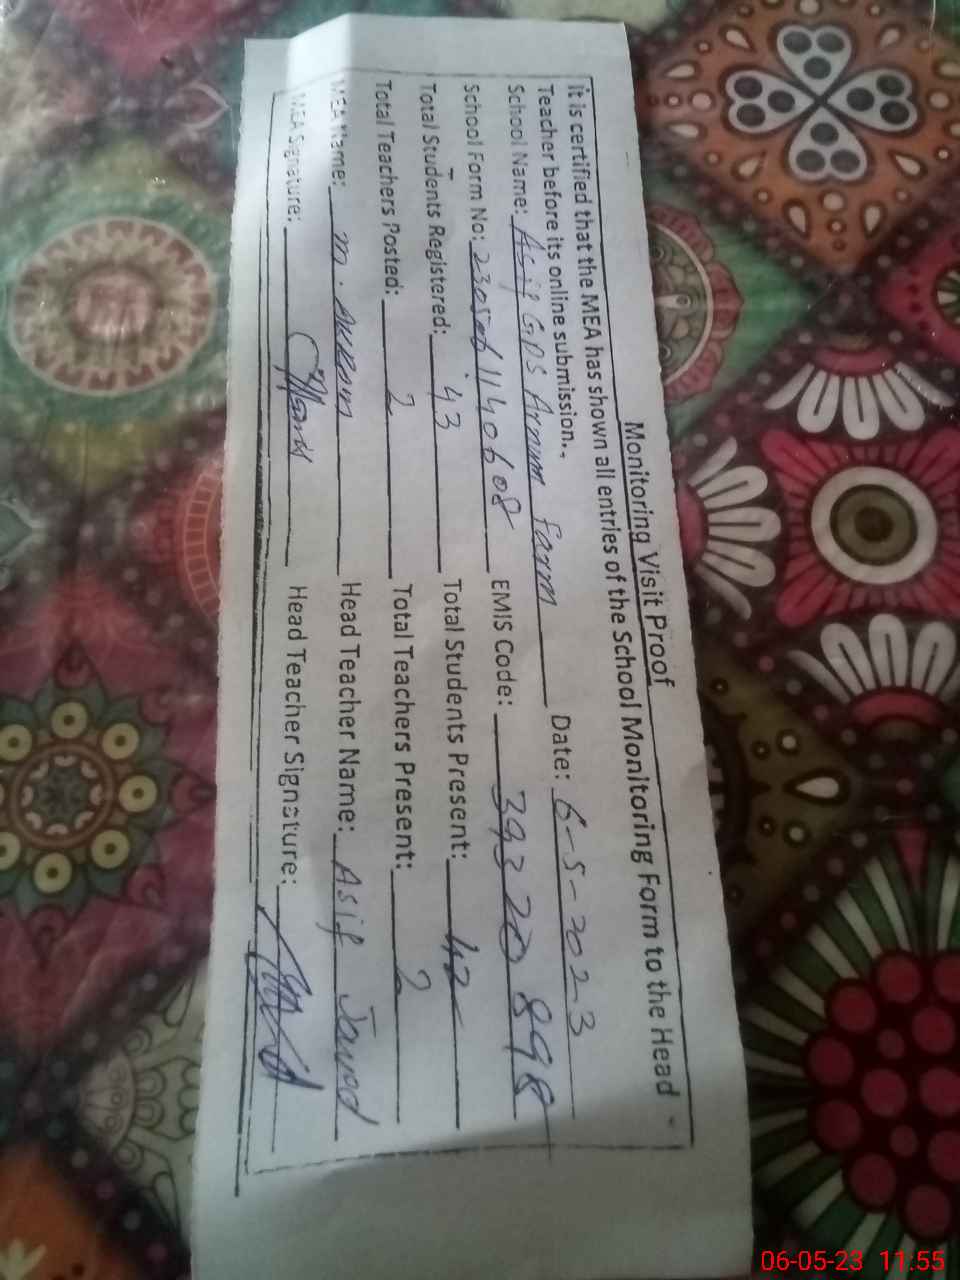 Monitoring Visit Proof
It is certified that the MEA has shown all entries of the School Monitoring Form to the Head
Teacher before its online submission..
School Name: Asif GPS Arnum farm Date: 6-5-2023
School Form No: EMIS Code: 39320898
Total Students Registered: 43 Total Students Present: 42
Total Teachers Posted: 2 Total Teachers Present: 2
MEA Name: M. Akram Head Teacher Name: Asif Javed
MEA Signature: Head Teacher Signature:
06-05-23 11:55